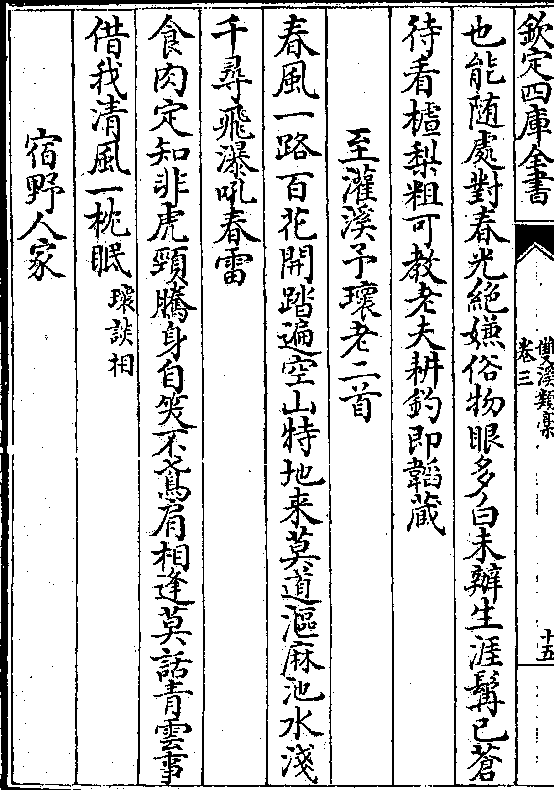 欽定四庫全書
雙溪類稾
卷三
十五
也能随處對春光絶嫌俗物眼多白未辦生涯鬂已蒼
待看樝梨粗可教老夫耕釣即韜蔵
至灌溪予瓌老二首
春風一路百花開踏遍空山特地来莫道漚麻池水淺
千尋飛瀑吼春雷
食肉定知非虎頸騰身自笑不鳶肩相逢莫話青雲事
借我清風一枕眠瓌談相
宿野人家